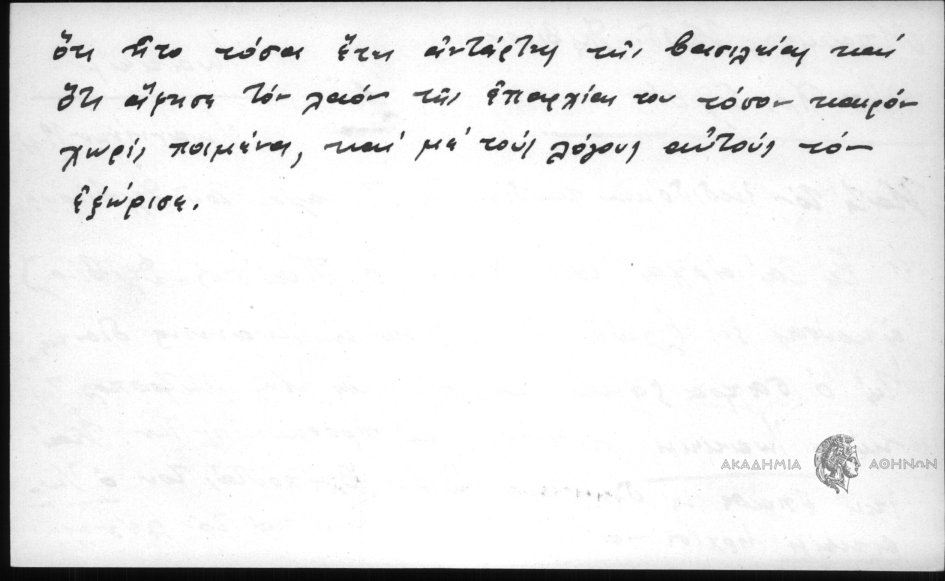 ὅτι ἦτο τόσα ἔτη ἀντάρτης τῆς βασιλείας καί
ὅτι ἄφησε τόν λαόν τῆς ἐπαρχίας του τόσον καιρόν
χωρίς ποιμένα, καί μέ τούς λόγους αὐτούς τόν
ἐξώρισε.
ΑΚΑΔΗΜΙΑ ΑΘΗΝΩΝ